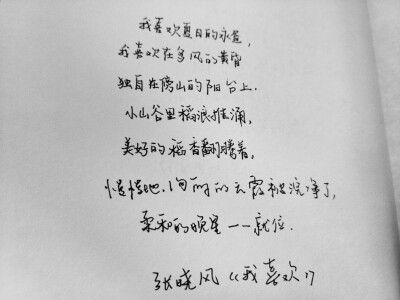 我喜欢夏日的永昼,
我喜欢在多风的黄昏
独自在傍山的阳台上.
小山谷里稻浪推涌,
美好的稻香翻腾着,
慢慢地,绚丽的云霞被浣净了,
柔和的晚星一一就位.
张晓风《我喜欢》